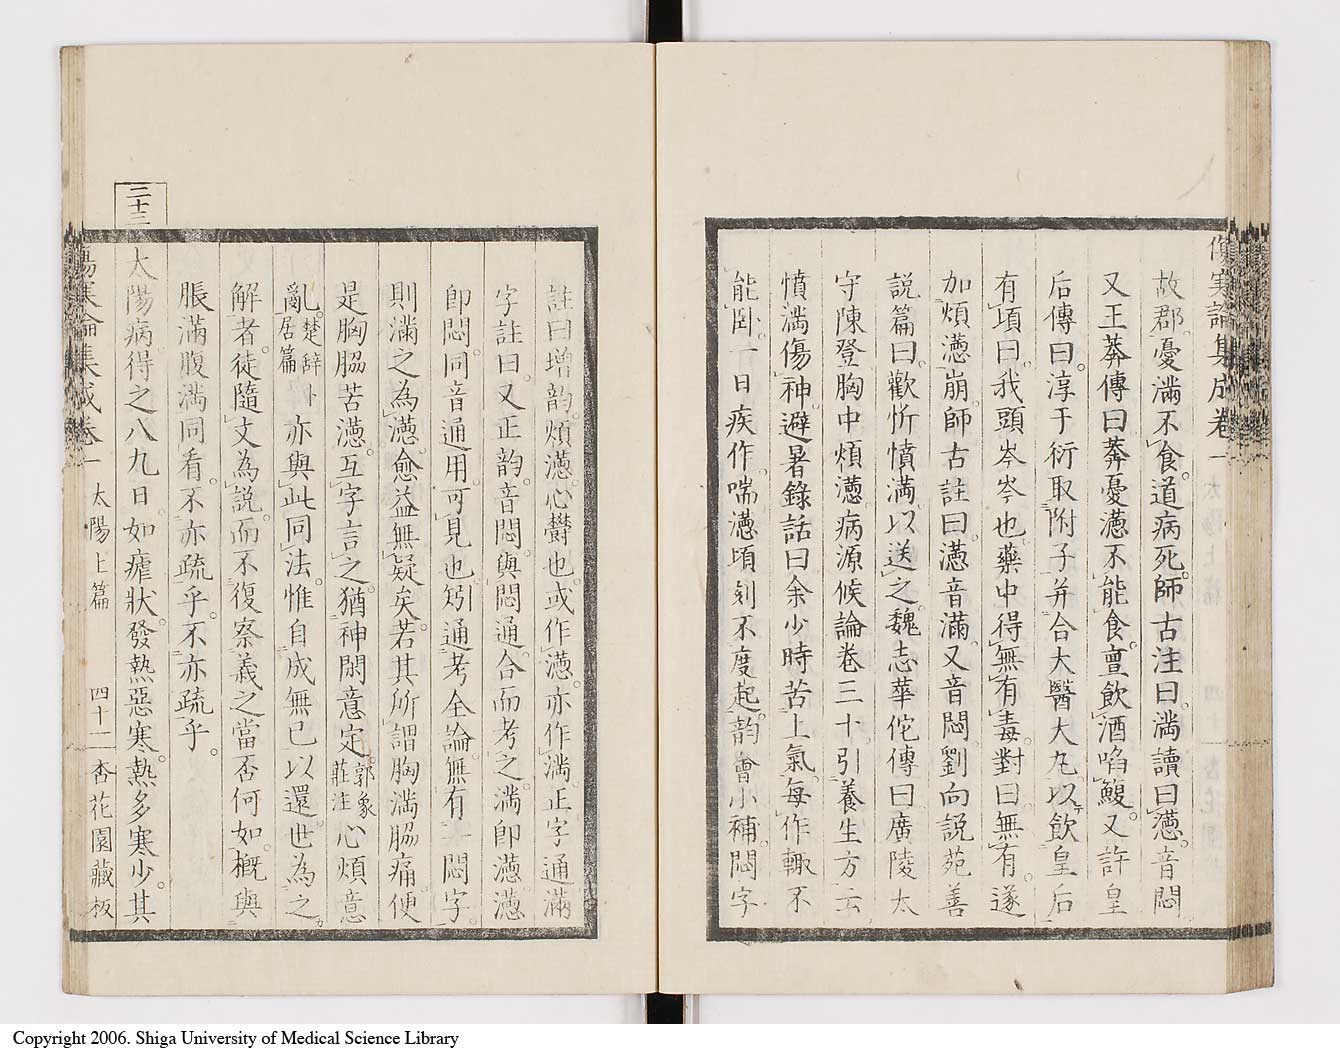 傷寒論集成卷一
故郡憂滿不食道病死師古注曰滿讀曰懣音悶
又王莽傳曰莽憂懣不能食亶飲酒啗鰒又許皇
后傳曰淳于衍取附子并合大醫大丸以飲皇后
有頃曰我頭岑岑也藥中得無有毒對曰無有遂
加煩懣崩師古註曰懣音滿又音悶劉向説苑善
説篇曰歡忻憤滿以送之魏志華佗傳曰廣陵太
守陳登胸中煩懣病源候論卷三十引養生方云
憤滿傷神避暑錄話曰余少時苦上氣每作輙不
能卧一日疾作喘懣頃刻不度起韵會小補悶字
註曰增韵煩懣心欝也或作懣亦作滿正字通滿
字註曰又正韵音悶與悶通合而考之滿即懣懣
即悶同音通用可見也矧通考全論無有一悶字
則滿之為懣愈益無疑矣若其所謂胸滿脇痛便
是胸脇苦懣互字言之猶神閑意定郭象莊注心煩意
亂楚辞卜居篇亦與此同法惟自成無已以還世為之
解者徒隨文為説而不復察義之當否何如概與
脹滿腹滿同看不亦疏乎不亦疏乎
二十三
太陽病得之八九日如瘧狀發熱惡寒熱多寒少其
傷寒論集成卷一 太陽上篇 四十二 杏花園藏板
Copyright 2006. Shiga University of Medical Science Library